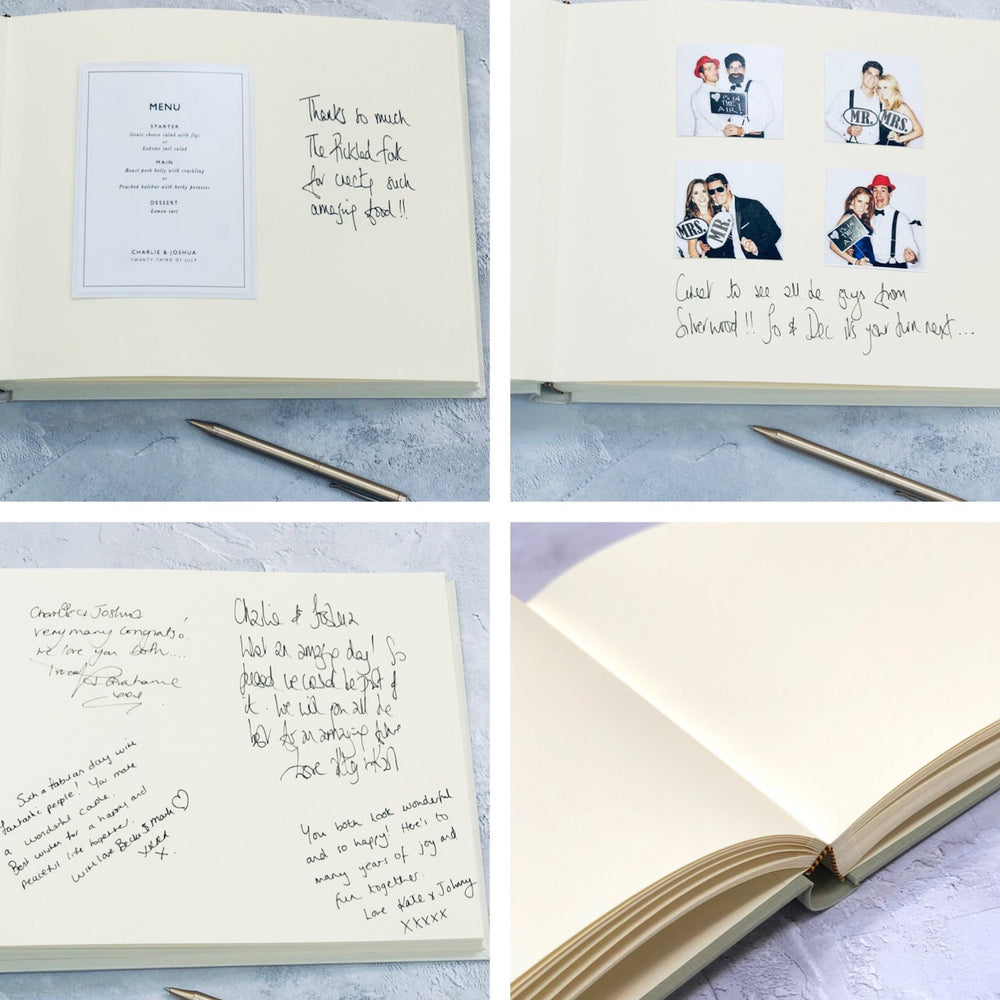 MENU
STARTER
Goats cheese salad with figs
or
Lobster tail salad
MAIN
Roast pork belly with crackling
or
Poached halibut with herby potatoes
DESSERT
Lemon tart
CHARLIE & JOSHUA
TWENTY THIRD OF JULY
Thanks so much
The Pickled Fork
for creating such
amazing food!!
IS IN
THE
AIR!
MR.
MRS.
MRS.
MR.
IS IN
THE
AIR!
Great to see all the guys from
Silverwood!! Jo & Dec it's your turn next...
Charlie & Joshua
very many congrats!
We love you both....
Charlie & Joshua
What an amazing day! So
pleased we could be part of
it. We wish you all the
best for an amazing future
Love
Such a fabulous day with
fantastic people! You make
a wonderful couple.
Best wishes for a happy and
peaceful life together.
With love Becky & Mark ♡
xxxx
x.
You both look wonderful
and so happy! Here's to
many years of joy and
fun together.
Love Kate & Johnny
xxxxx